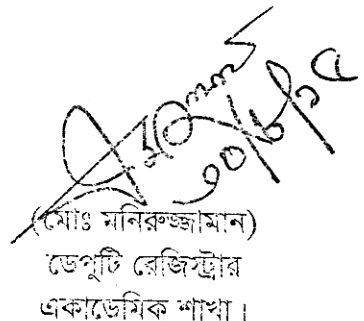 ৩০/৮/১৫
(মোঃ মনিরুজ্জামান)
ডেপুটি রেজিস্ট্রার
একাডেমিক শাখা।